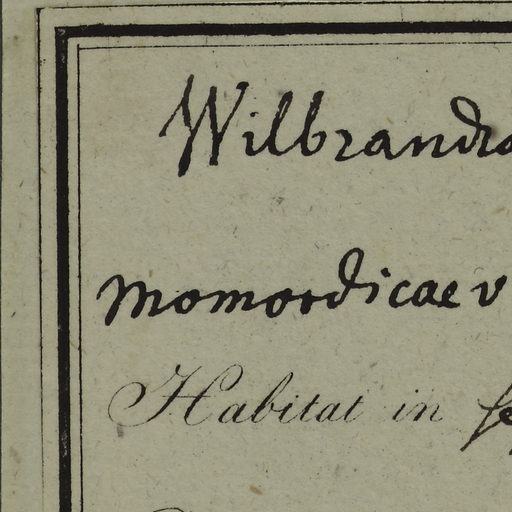 Wilbrandia
momordicae v
Habitat in